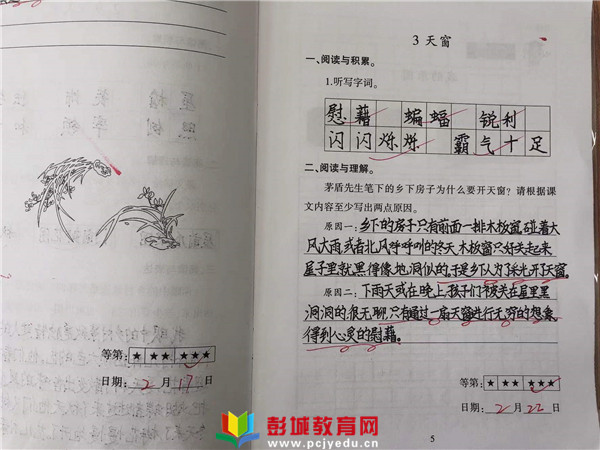 等第：★ ★★ ★★★
日期：2月17日
3 天窗
一、阅读与积累。
1.听写字词。
慰藉 蝙蝠 锐利
闪闪烁烁 霸气十足
二、阅读与理解。
茅盾先生笔下的乡下房子为什么要开天窗？请根据课
文内容至少写出两点原因。
原因一：乡下的房子只有前面一排木板窗，碰着大
风大雨，或者北风呼呼叫的冬天，木板窗只好关起来，
屋子里就黑得像地洞似的，于是乡下人为了采光开了天窗。
原因二：下雨天或在晚上，孩子们被关在屋里黑
洞洞的很无聊，只有通过一扇天窗进行无穷的想象，
得到心灵的慰藉。
等第：★ ★★ ★★★
日期：2月22日
5
彭城教育网
www.pcjyedu.cn